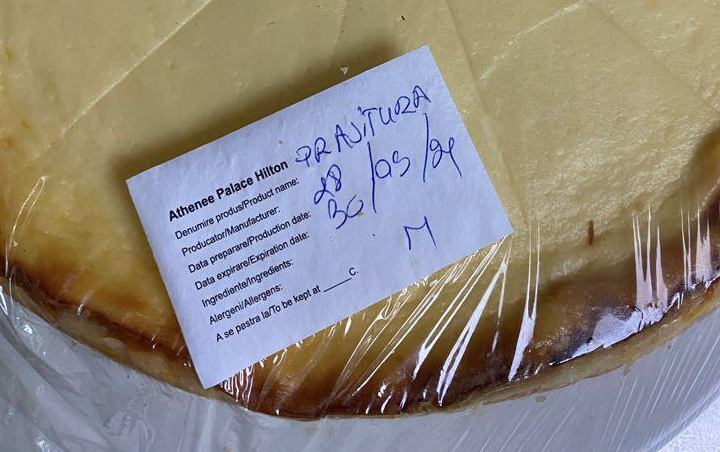 Athenee Palace Hilton
Denumire produs/Product name: PRAJITURA
Producator/Manufacturer:
Data preparare/Production date: 28 /05/24
Data expirare/Expiration date: 30
Ingrediente/Ingredients:
Alergeni/Allergens: M
A se pastra la/To be kept at ____C.